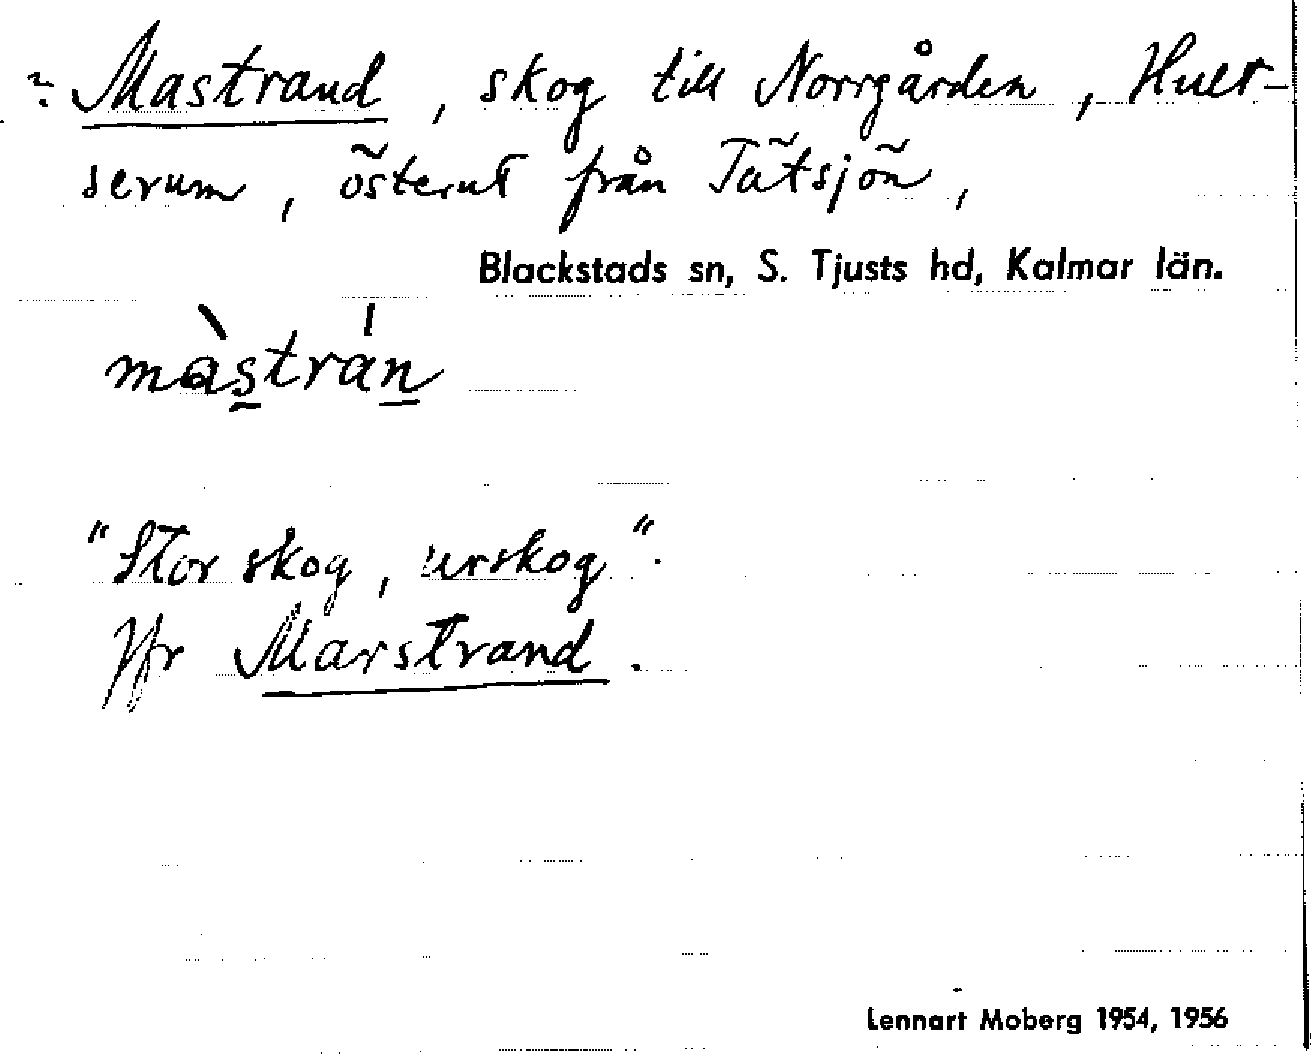 ~. Mastrand, skog till Norrgården, Hult-
serum, österut från Tätsjön,
Blackstads sn, S. Tjusts hd, Kalmar län.
màstrán
"Stor skog, urskog".
Jfr Marstrand.
Lennart Moberg 1954, 1956